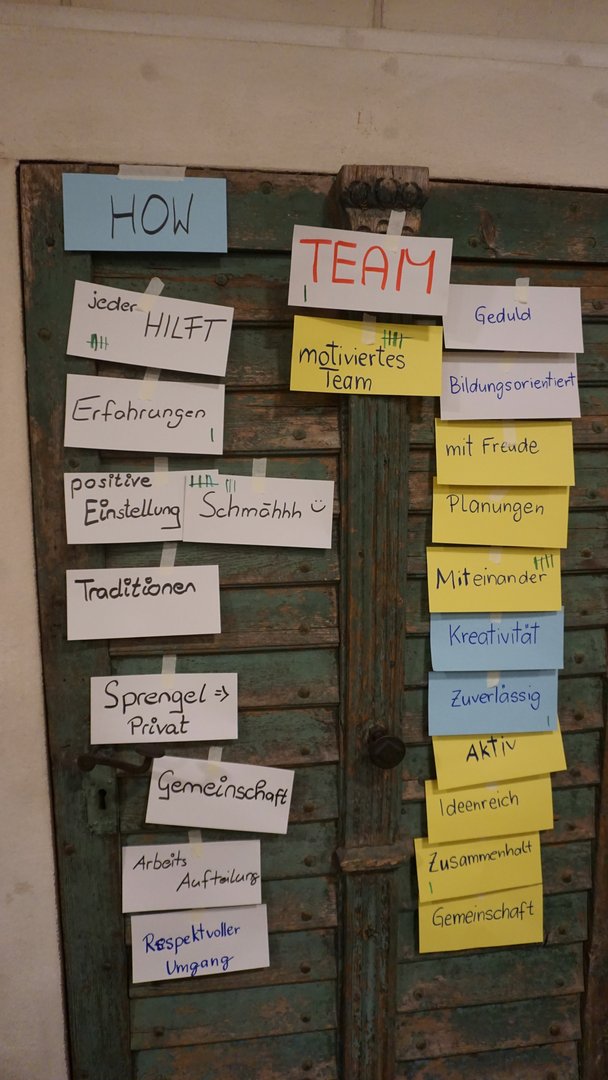 HOW
jeder
HILFT
Erfahrungen
positive
Einstellung
Schmähhh
Traditionen
Sprengel ⇒
Privat
Gemeinschaft
Arbeits
Aufteilung
Respektvoller
Umgang
TEAM
motiviertes
Team
Geduld
Bildungsorientiert
mit Freude
Planungen
Miteinander
Kreativität
Zuverlässig
Aktiv
Ideenreich
Zusammenhalt
Gemeinschaft